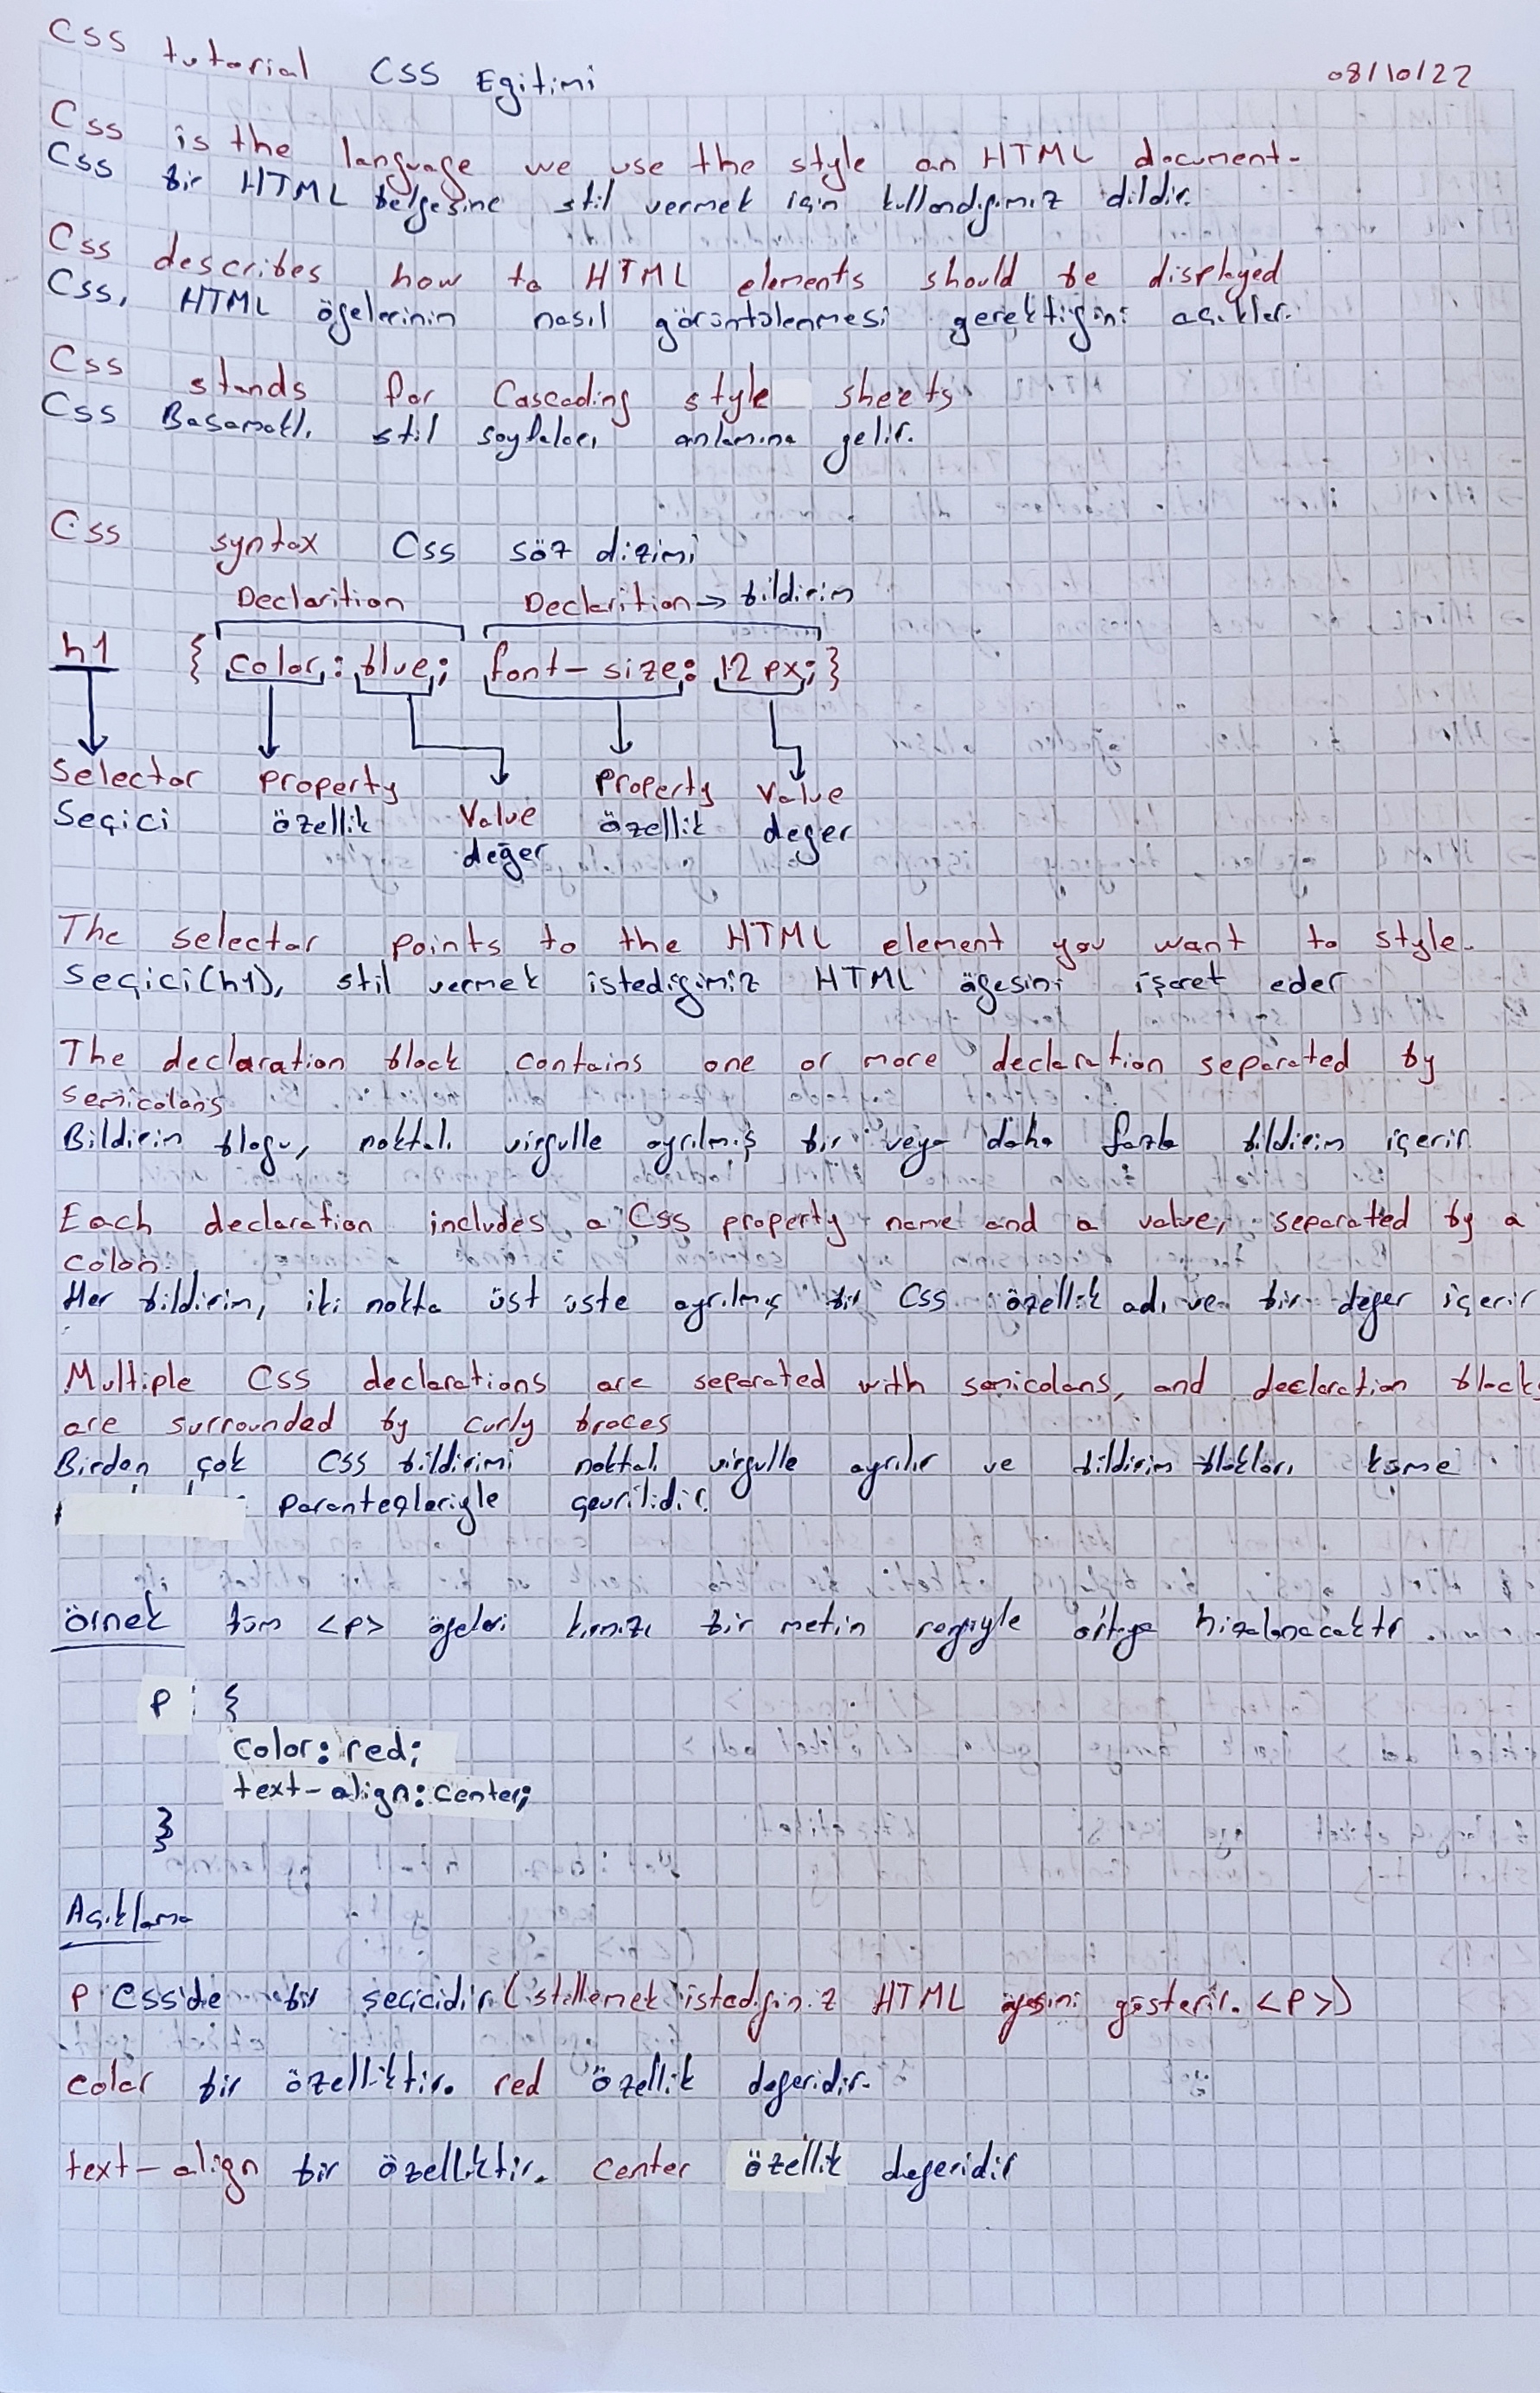 Css tutorial CSS Egitimi 08/10/22
Css is the language we use the style an HTML document.
Css bir HTML belgesine stil vermek için kullandıgımız dildir.
Css describes how to HTML elements should be displayed
Css, HTML ögelerinin nasıl görüntülenmesi gerektigini açıklar.
Css stands for Cascading style sheets
Css Basamaklı stil sayfaları anlamına gelir.
Css syntax Css söz dizimi
Declarition Declarition → bildirim
h1 { color: blue; font-size: 12px; }
Selector Property Property Value
Seçici özellik Value özellik deger
değer
The selector points to the HTML element you want to style.
Seçici(h1), stil vermek istedigimiz HTML ögesini işaret eder
The declaration block contains one or more declaration separated by
semicolons
Bildirim blogu, noktalı virgulle ayrılmış bir veya daha fazla bildirim içerir
Each declaration includes a Css property name and a value, separated by a
colon.
Her bildirim, iki nokta üst üste ayrılmış bir CSS özellik adı ve bir değer içerir
Multiple CSS declarations are separated with semicolons, and declaration blocks
are surrounded by curly braces
Birden çok CSS bildirimi noktalı virgulle ayrılır ve bildirim blokları küme
parantezleriyle çevrilidir.
örnek tüm <p> ögeleri kırmızı bir metin rengiyle ortaya hizalanacaktır.
p {
color: red;
text-align: center;
}
Açıklama
P Css'de bir seçicidir (stillemek istediginiz HTML ögesini gösterir. <P>)
color bir özelliktir. red özellik degeridir.
text-align bir özelliktir. center özellik degeridir